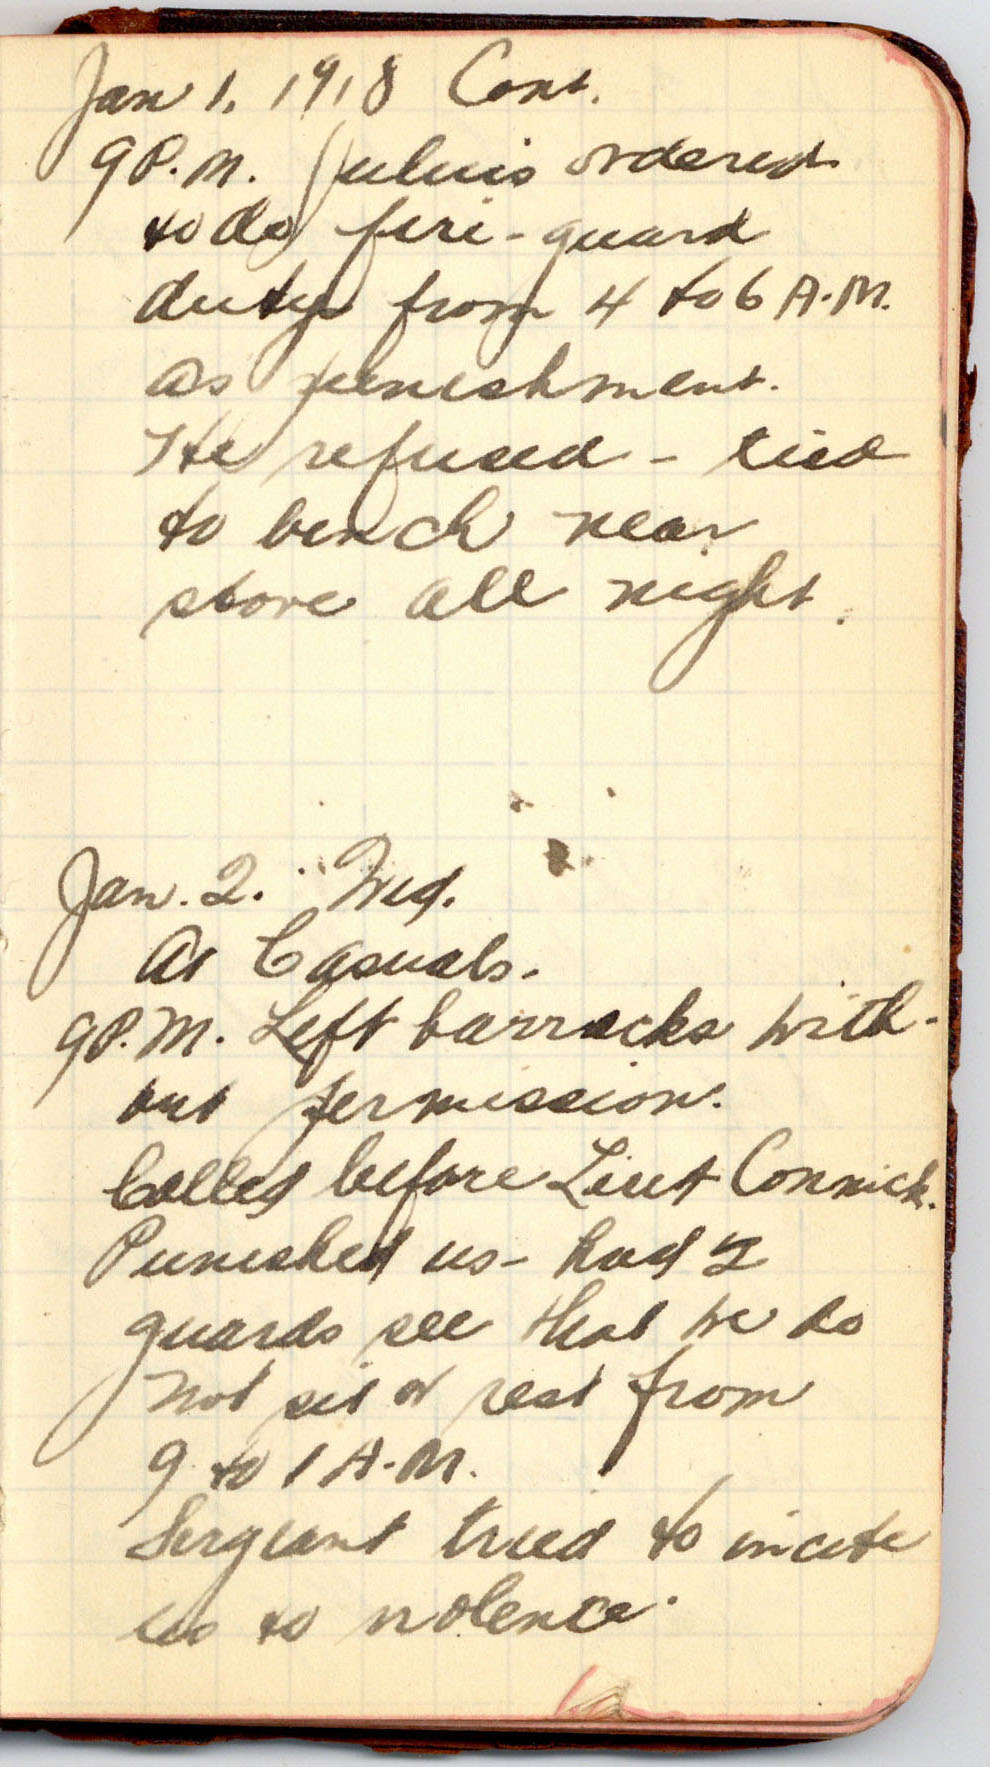 Jan 1, 1918 Cont.
9 P.M. Julius ordered
to do fire-guard
duty from 4 to 6 A.M.
as punishment.
He refused - tied
to bench near
stove all night.
Jan. 2. Wed.
At Casuals.
9 P.M. Left barracks with-
out permission.
Called before Lieut Connick.
Punished us - had 2
guards see that we do
not sit or rest from
9 to 1 A.M.
Sergeant tried to incite
us to violence.